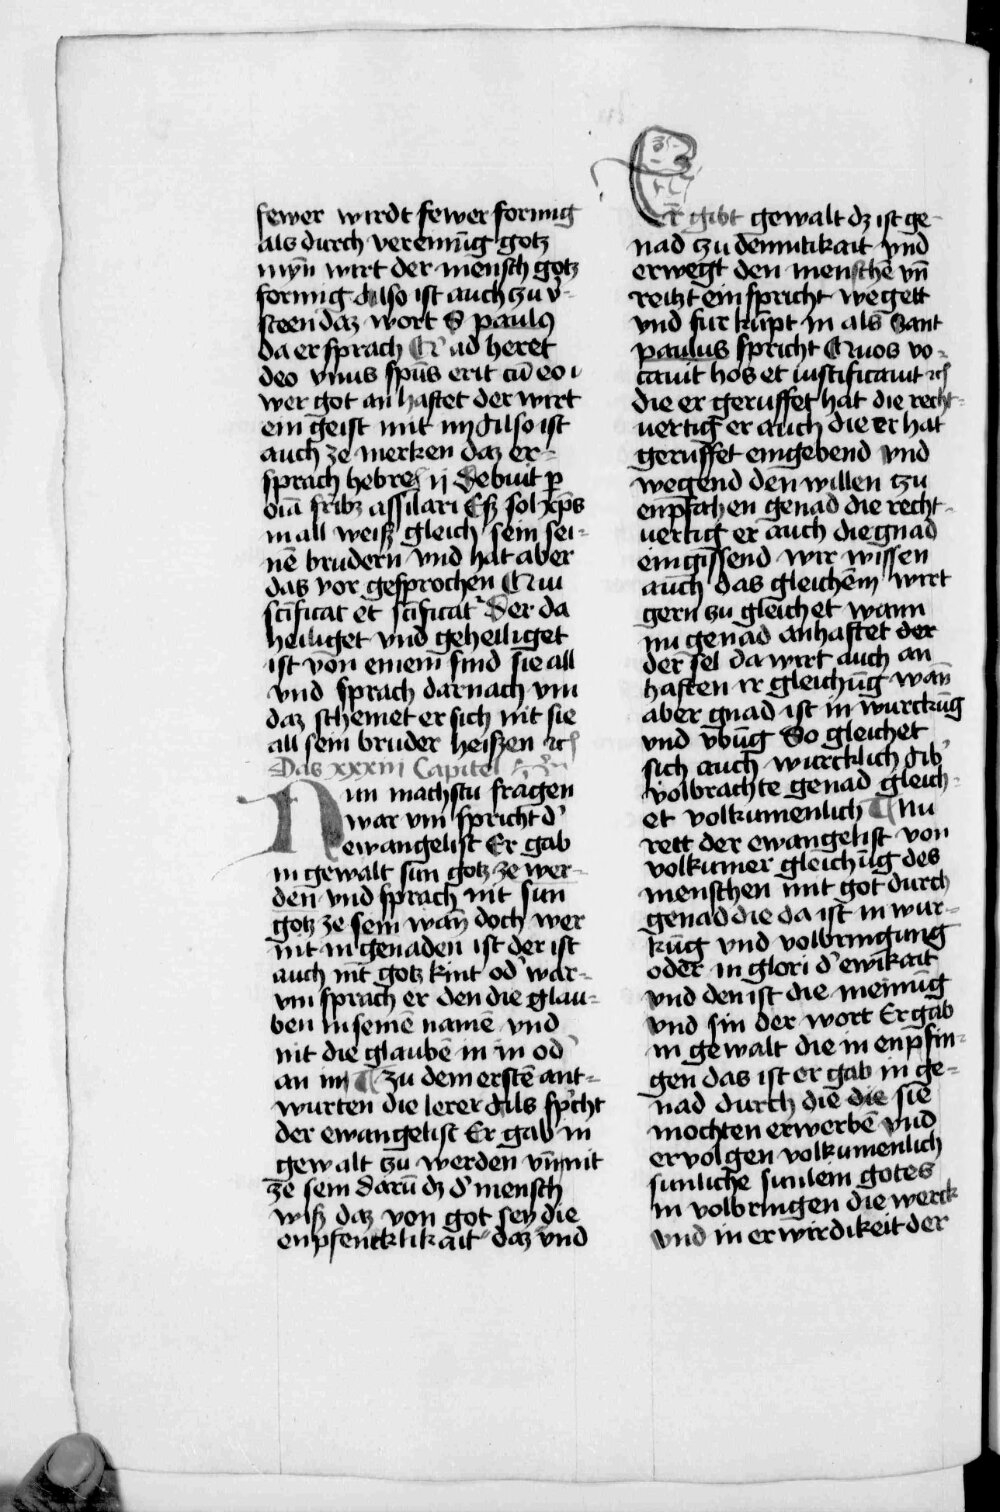 fewer wirdt fewer formig
als durch vereinūg gotz
myn̄ wirt der mensch gotz
formig Also ist auch zu v̾-
steen daz wort S paulꝯ
da er sprach Qͥ ad heret
deo vnus spūs erit cū eo ·
wer got an haftet der wirt
ein geist mit im Also ist
auch ze merken daz er-
sprach hebreꝝ ij Debuit ꝑ
oīa frībꝫ assilari Eß sol xp̄s
in all weiß gleich sein sei-
nē brudern vnd hat aber
das vor gesprochen Qui
sc̄ificat et sc̄ificatͬ Der da
heiliget vnd geheiliget
ist von einem sind sie all
vnd sprach darnach vm
daz schemet er sich nit sie
all sein bruder heißen ⁊c̄
Das xxxiii Capitel
Nun machstu fragen
war vm spricht d̾
ewangelist Er gab
in gewalt sun gotz ze wer-
den vnd sprach nit sun
gotz ze sein wan̄ doch wer
nit in genaden ist der ist
auch nit gotz kint od̾ war-
vm sprach er den die glau-
ben in seinē namē vnd
nit die glaubē in in od̾
an in ¶ zu dem erstē ant-
wurten die lerer Als sp̾cht
der ewangelist Er gab in
gewalt zu werden vn̄ nit
ze sein Darū dz d̾ mensch
wiß daz von got sey die
enpfencklikait daz vnd
Er gibt gewalt dz ist ge-
nad zu demutikait vnd
erwegt den menschē vn̄
reitzt ein spricht wegett
vnd fur kūpt in als Sant
paulus spricht Quos vo-
cauit hos et iustificauit ⁊c̄
die er geruffet hat die recht-
uertigᷓ er auch die er hat
geruffet eingebend vnd
wegend den willen zu
enpfahen genad die recht-
uertigᷓ er auch die gnad
eingissend wir wissen
auch das gleichem wirt
gern zu gleichet wann
nu genad anhaftet der
der sel da wirt auch an
haften ir gleichūg wan̄
aber gnad ist in wurckūg
vnd vbūg So gleichet
sich auch wurcklich Gib̾
volbrachte genad gleich-
et volkumenlich ¶ Nu
rett der ewangelist von
volkumer gleichūg des
menschen mit got durch
genad die da ist in wur-
kūg vnd volbringung
oder in glori d̾ ewikait
vnd den ist die meinūg
vnd sin der wort Er gab
in gewalt die in enpfin-
gen das ist er gab in ge-
nad durch die die sie
mochten erwerbē vnd
eruolgen volkumenlich
sunliche sunlein gotes
in volbringen die werck
vnd in erwirdikeit der